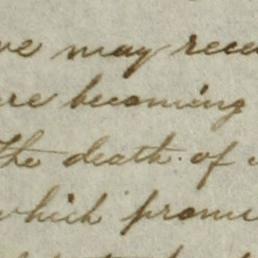 we may rece
are becoming
the death of
which promi